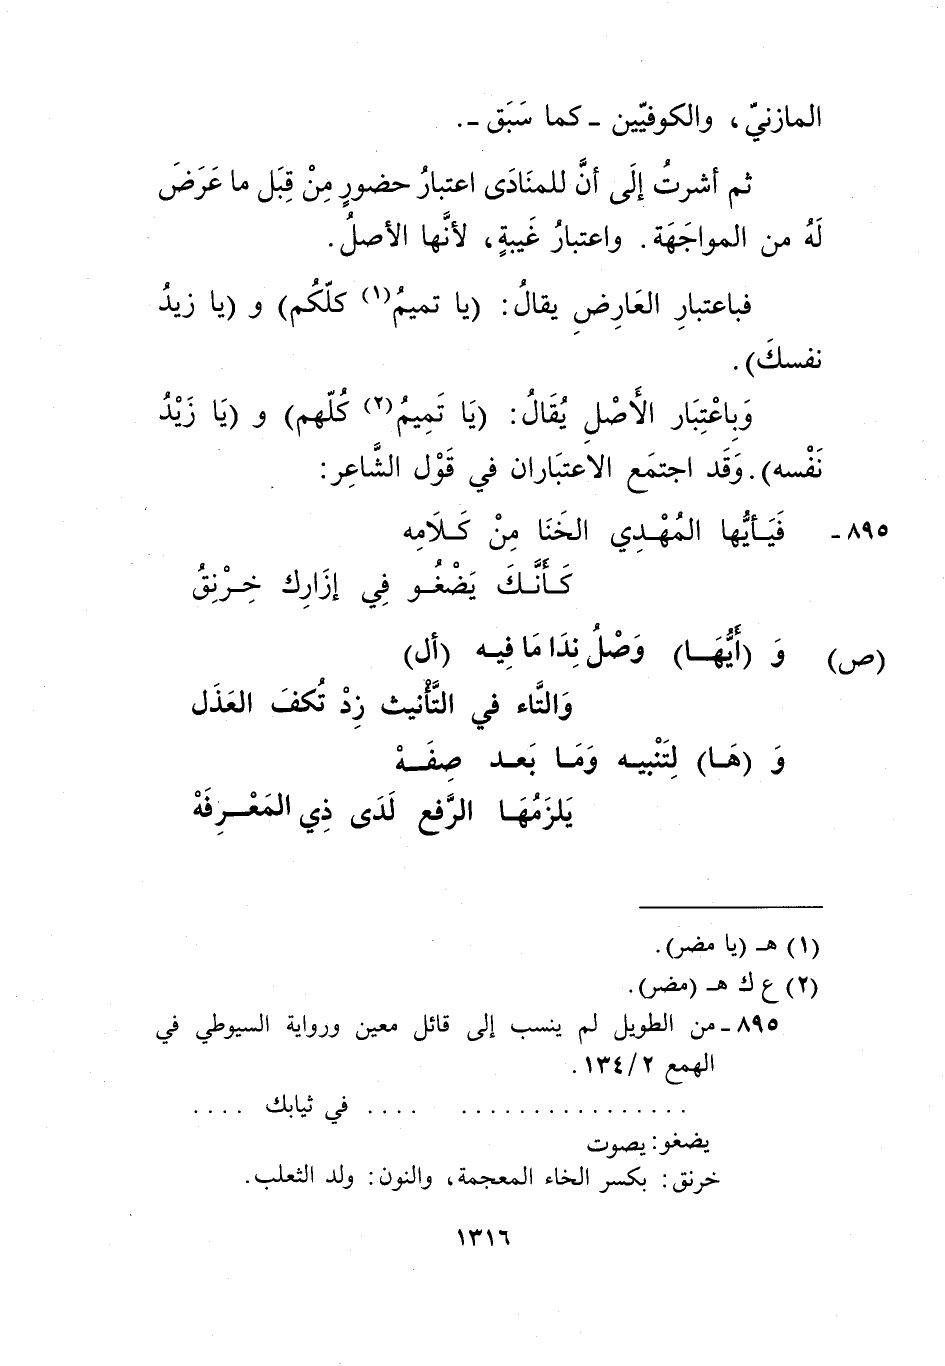 المازنيّ، والكوفيّين ـ كما سَبَق ـ.
ثم أشرتُ إلَى أنَّ للمنَادَى اعتبارُ حضورٍ مِنْ قِبَل ما عَرَضَ
لَهُ من المواجَهَة. واعتبارُ غَيبةٍ، لأنَّها الأصلُ.
فباعتبارِ العَارِضِ يقالُ: (يا تميمُ(١) كلّكُم) و (يا زيدُ
نفسكَ).
وَبِاعْتِبَار الأَصْلِ يُقَالُ: (يَا تَمِيمُ(٢) كُلّهم) و (يَا زَيْدُ
نَفْسه). وَقَد اجتمَع الاعتبَاران في قَوْل الشَّاعِر:
٨٩٥ـ فَيَـأيُّها المُهْـدِي الخَنَا مِنْ كَـلَامِه
كَـأَنَّـكَ يَضْغُـو فِي إزَارِك خِـرْنِقُ
(ص) وَ (أَيُّهَـا) وَصْلُ نِدَا مَا فِيـه (أل)
وَالتَّاء في التَّأْنيث زِدْ تُكفَ العَذَل
وَ (هَـا) لِتَنْبيـه وَمَـا بَعـد صِفَـهْ
يَلزَمُهَـا الرَّفع لَدَى ذِي المَعْـرِفَهْ
(١) هـ (يا مضر).
(٢) ع ك هـ (مضر).
٨٩٥ـ من الطويل لم ينسب إلى قائل معين ورواية السيوطي في
الهمع ٢/١٣٤.
. . . . . . . . . . . . . . . . . . . . في ثيابك . . . .
يضغو: يصوت
خرنق: بكسر الخاء المعجمة، والنون: ولد الثعلب.
١٣١٦